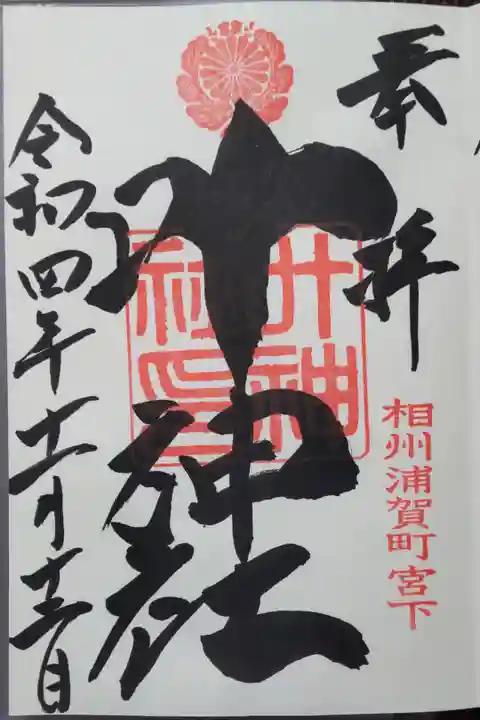 奉拝
相州浦賀町宮下
叶神社
叶神
社印
令和四年十一月十三日